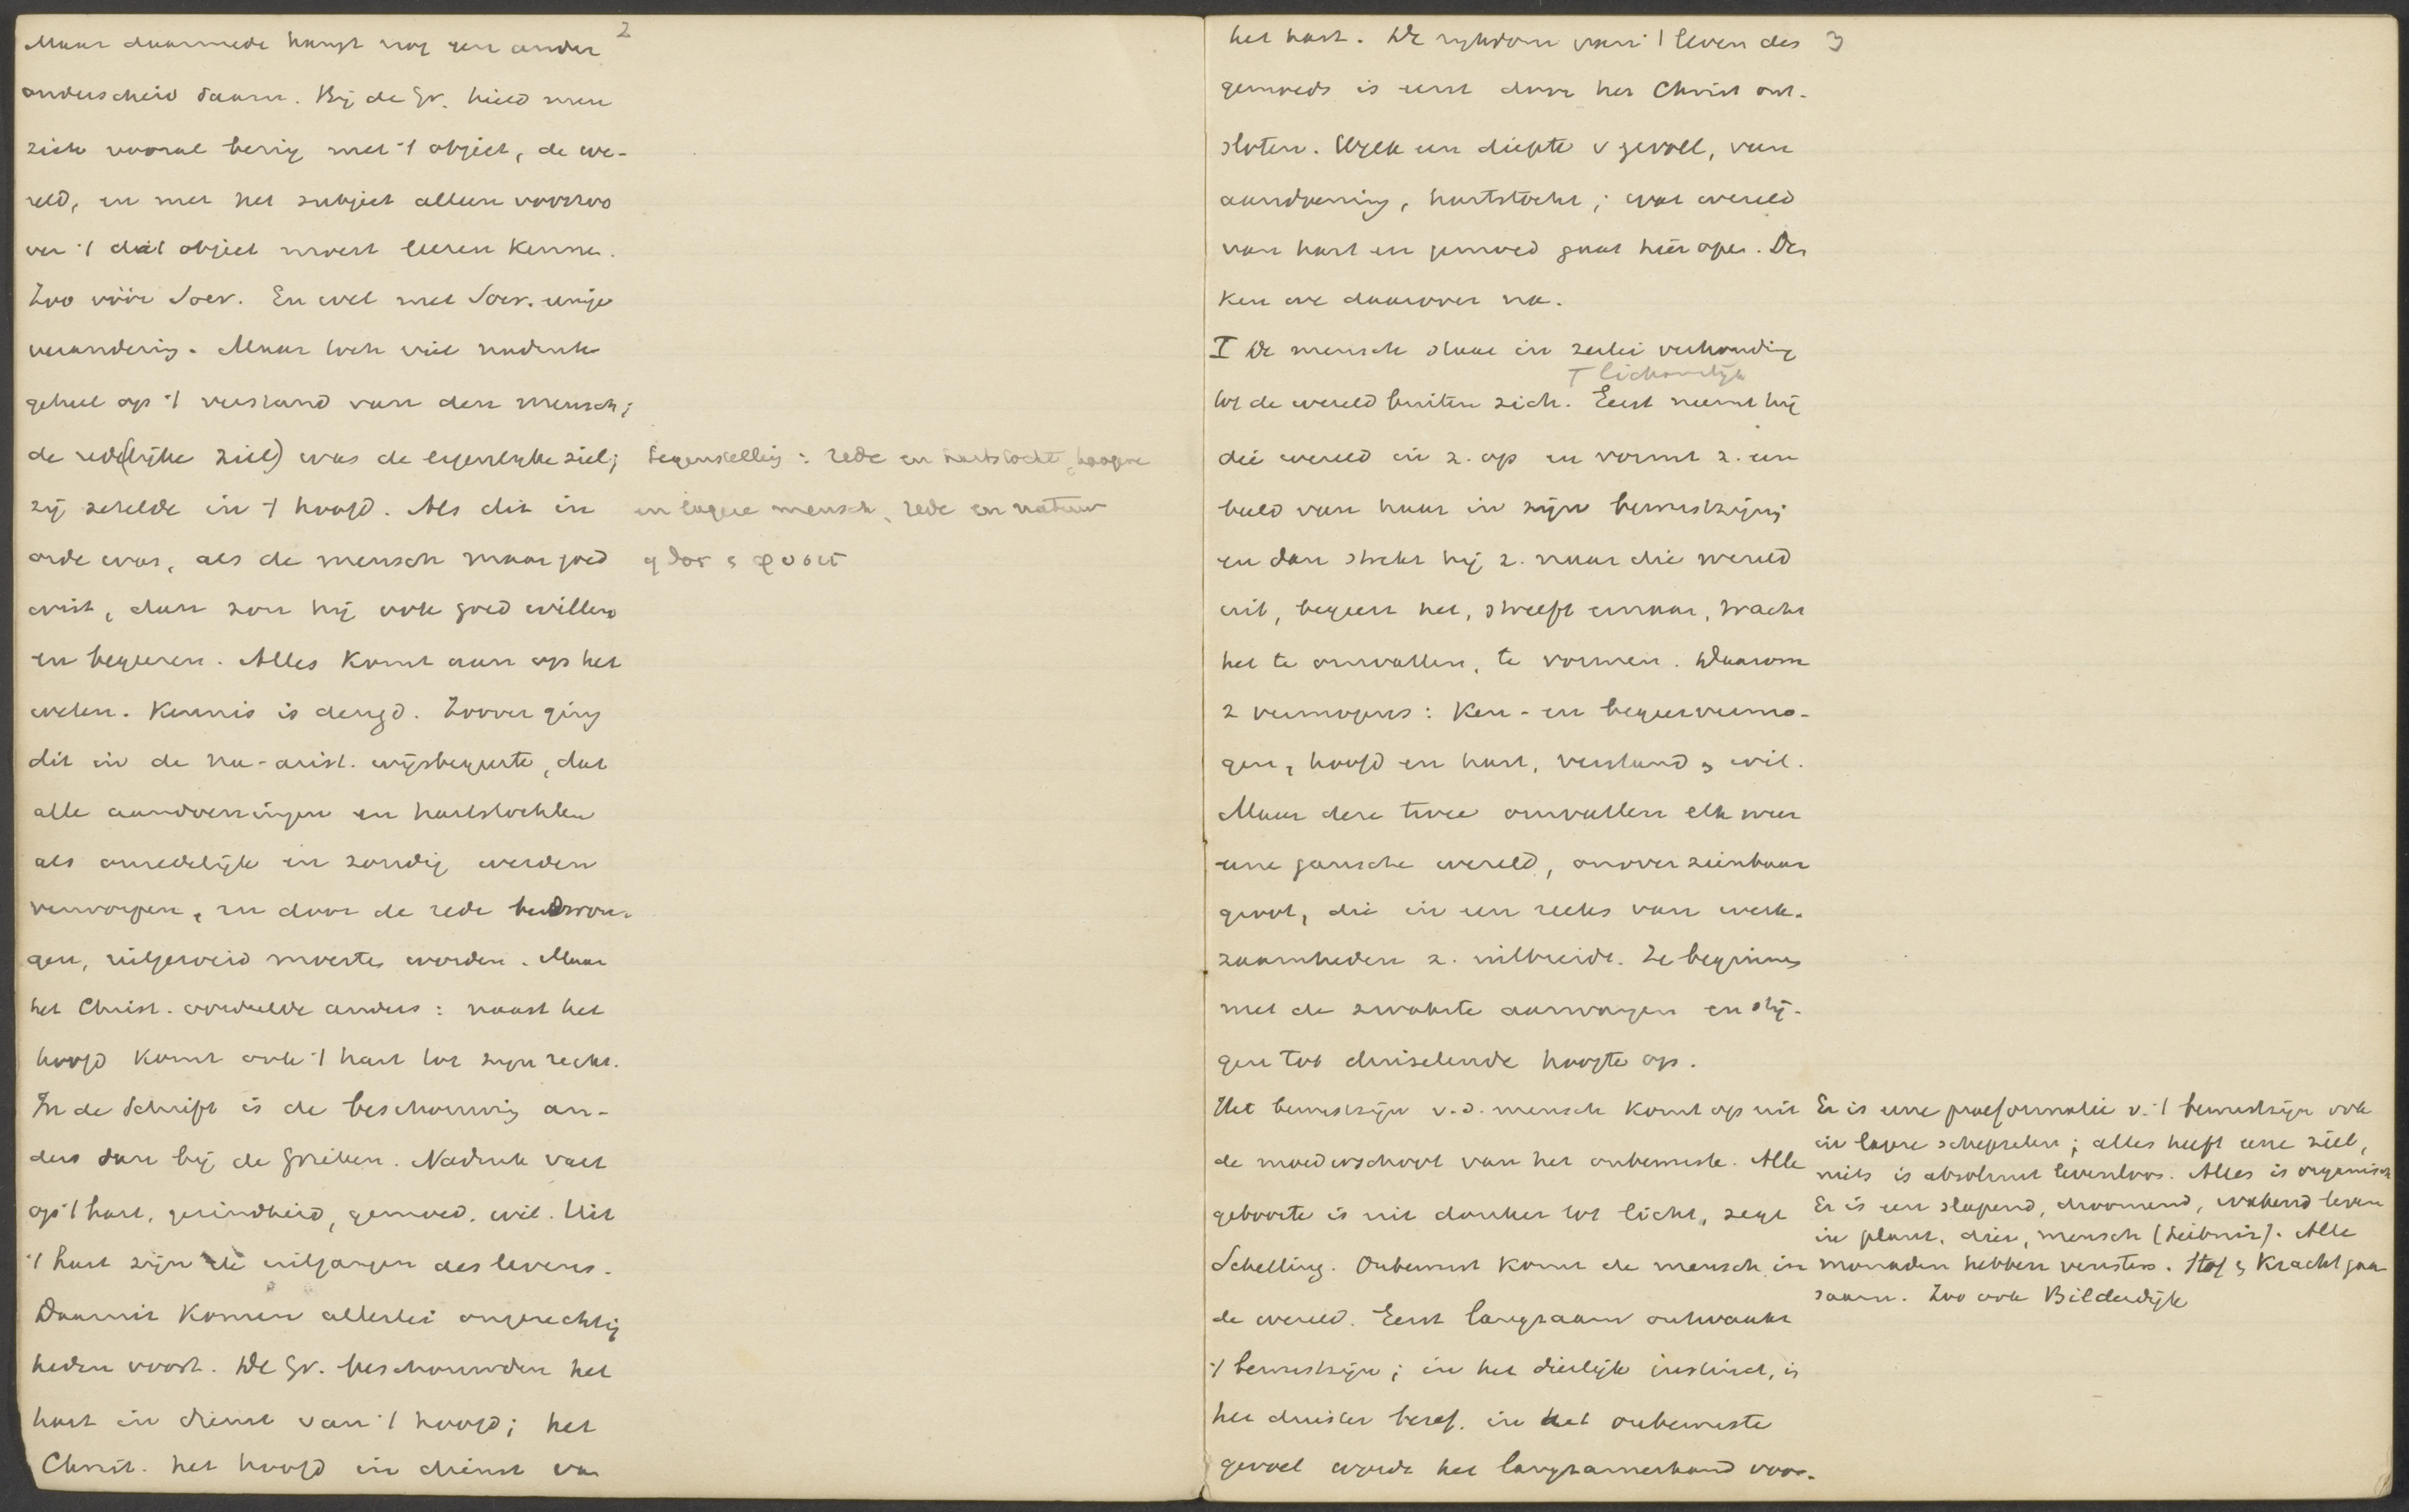 2
Maar daarmede hangt nog een ander
onderscheid saam. Bij de Gr. hield men
zich vooral bezig met 't object, de we-
reld, en met het subject alleen voorzoo
ver 't dat object moest leeren kennen.
Zoo vóór Socr. En wel met Socr. eenige
verandering. Maar toch viel nadruk
geheel op 't verstand van den mensch;
de rede(lijke ziel) was de eigenlijke ziel;
zij zetelde in 't hoofd. Als dit in
orde was, als de mensch maar goed
wist, dan zou hij ook goed willen
en begeeren. Alles komt aan op het
weten. Kennis is deugd. Zoover ging
dit in de na-arist. wijsbegeerte, dat
alle aandoeningen en hartstochten
als onredelijk en zondig werden
verworpen, en door de rede bedwon-
gen, uitgeroeid moesten worden. Maar
het Christ. oordeelde anders: naast het
hoofd komt ook 't hart tot zijn recht.
In de Schrift is de beschouwing an-
ders dan bij de Grieken. Nadruk valt
op 't hart, gezindheid, gemoed, wil. Uit
't hart zijn de uitgangen des levens.
Daaruit komen allerlei ongerechtig
heden voort. De Gr. beschouwden het
hart in dienst van 't hoofd; het
Christ. het hoofd in dienst van
Tegenstelling: rede en hartstocht, hoogere
en lagere mensch, rede en natuur
3
het hart. De rijkdom van 't leven des
gemoeds is eerst door het Christ ont-
sloten. Welk een diepte v gevoel, van
aandoening, hartstocht; wat wereld
van hart en gemoed gaat hier open. Den
ken we daarover na.
I De mensch staat in zeerlei verhouding
T lichamelijk
tot de wereld buiten zich. Eerst neemt hij
die wereld in z. op en vormt z. een
beeld van haar in zijn bewustzijn;
en dan strekt hij z. naar die wereld
uit, begeert het, streeft ernaar, tracht
het te omvatten, te vormen. Daarom
2 vermogens: Ken- en begeervermo-
gen, hoofd en hart, verstand en wil.
Maar deze twee omvatten elk weer
eene gansche wereld, onoverzienbaar
groot, die in een reeks van werk-
zaamheden z. uitbreidt. Ze beginnen
met de zwakste aanvangen en stij-
gen tot duizelende hoogte op.
Het bewustzijn v.d. mensch komt op uit
de moederschoot van het onbewuste. Alle
geboorte is uit donker tot licht, zegt
Schelling. Onbewust komt de mensch in
de wereld. Eerst langzaam ontwaakt
't bewustzijn; in het dierlijk instinct, in
het duister besef, in het onbewuste
gevoel wordt het langzamerhand voor-
Er is eene praeformatie v. 't bewustzijn ook
in lagere schepselen; alles heeft eene ziel,
niets is absoluut levenloos. Alles is organisch
Er is een slapend, droomend, wakend leven
in plant, dier, mensch (Leibniz). Alle
monaden hebben vensters. Stof en Kracht gaan
saam. Zoo ook Bilderdijk